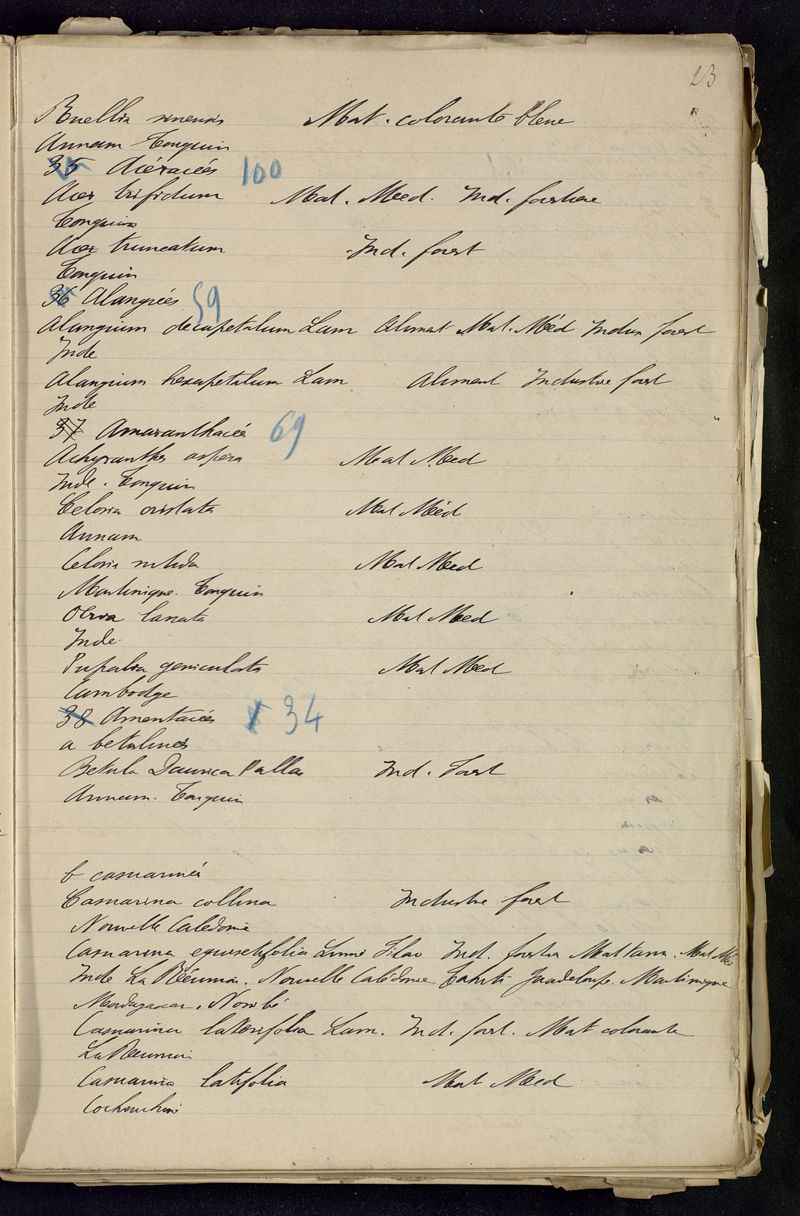 23
Ruellia sinensis Mat. colorante bleue
Annam Tonquin
35 Acéracées 100
Acer trifidum Mat. Med. Ind. forstiere
Tonquin
Acer truncatum Ind. forest
Tonquin
36 Alangiées 59
Alangium decapetalum Lam Alimat Mat. Méd Indus forest
Inde
Alangium hexapetalum Lam Aliment Industrie forest
Inde
37 Amaranthacées 69
Achyranthes aspera Mat Med
Inde. Tonquin
Celosia cristata Mat Méd
Annam
Celosia nitida Mat Med
Martinique. Tonquin
Mat Med
Inde.
Pupalia geniculata Mat Med
Cambodge
38 Amentacées 34
a betulinées
Betula Daurica Pallas Ind. Forest
Annam. Tonquin
b casuarinées
Casuarina collina Industrie forest
Nouvelle Calédonie
Casuarina equisetifolia Linné Filao Ind. forstier Mat tann. Mat Méd
Inde La Réunion. Nouvelle Calédonie Tahiti Guadeloupe. Martinique
Madagascar. Nossi bé
Casuarina laterifolia Lam. Ind. forest. Mat colorante
La Réunion
Casuarina latifolia Mat Med
Cochinchine